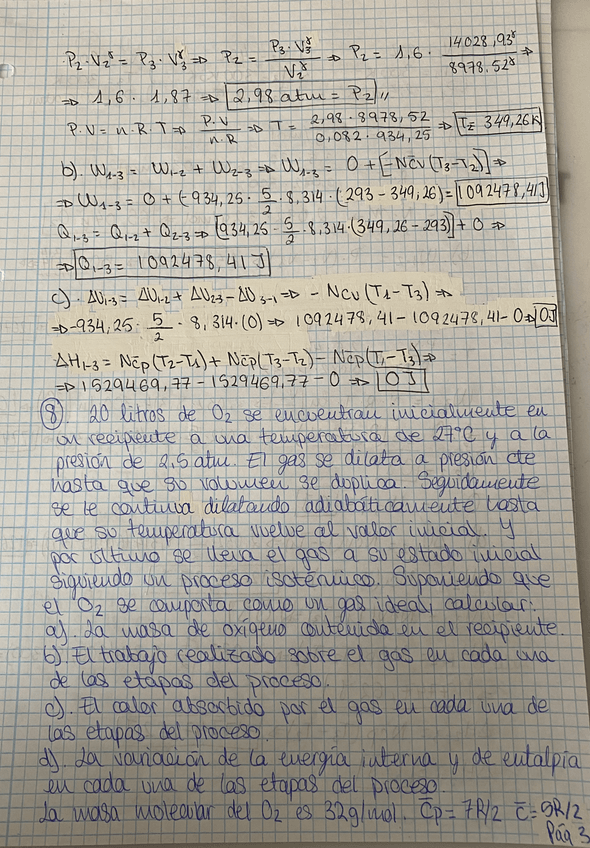 · P₂·V₂^γ = P₃·V₃^γ ⇒ P₂ = P₃·V₃^γ / V₂^γ ⇒ P₂ = 1,6 · 14028,93^γ / 8978,52^γ ⇒
⇒ 1,6 · 1,87 ⇒ 2,98 atm = P₂ //
P·V = n·R·T ⇒ P·V / n·R ⇒ T = 2,98·8978,52 / 0,082·934,25 ⇒ T₂ = 349,26K
b). W₁₋₃ = W₁₋₂ + W₂₋₃ ⇒ W₁₋₃ = 0 + [-NC̄v(T₃-T₂)] ⇒
⇒ W₁₋₃ = 0 + (-934,25 · 5/2 · 8,314 · (293-349,26) = 1092478,41J
Q₁₋₃ = Q₁₋₂ + Q₂₋₃ ⇒ [934,25 · 5/2 · 8,314·(349,26-293)] + 0 ⇒
⇒ Q₁₋₃ = 1092478,41 J
c). ΔU₁₋₃ = ΔU₁₋₂ + ΔU₂₋₃ - ΔU₃₋₁ ⇒ - NCv (T₁-T₃) ⇒
⇒ -934,25 · 5/2 · 8,314·(0) ⇒ 1092478,41 - 1092478,41 - 0 ⇒ 0J
ΔH₁₋₃ = NC̄p(T₂-T₁) + NC̄p(T₃-T₂) - NC̄p(T₁-T₃) ⇒
⇒ 1529469,77 - 1529469,77 - 0 ⇒ 0 J
⑧. 20 litros de O₂ se encuentran inicialmente en
un recipiente a una temperatura de 27ºC y a la
presión de 2,5 atm. El gas se dilata a presión cte
hasta que su volumen se duplica. Seguidamente
se le continua dilatando adiabáticamente hasta
que su temperatura vuelve al valor inicial. Y
por último se lleva el gas a su estado inicial
siguiendo un proceso isotérmico. Suponiendo que
el O₂ se comporta como un gas ideal, calcular:
a). La masa de oxígeno contenida en el recipiente.
b). El trabajo realizado sobre el gas en cada una
de las etapas del proceso.
c). El calor absorbido por el gas en cada una de
las etapas del proceso.
d). La variación de la energía interna y de entalpía
en cada una de las etapas del proceso.
La masa molecular del O₂ es 32g/mol. C̄p = 7R/2 c̄ = 5R/2
Pág 3